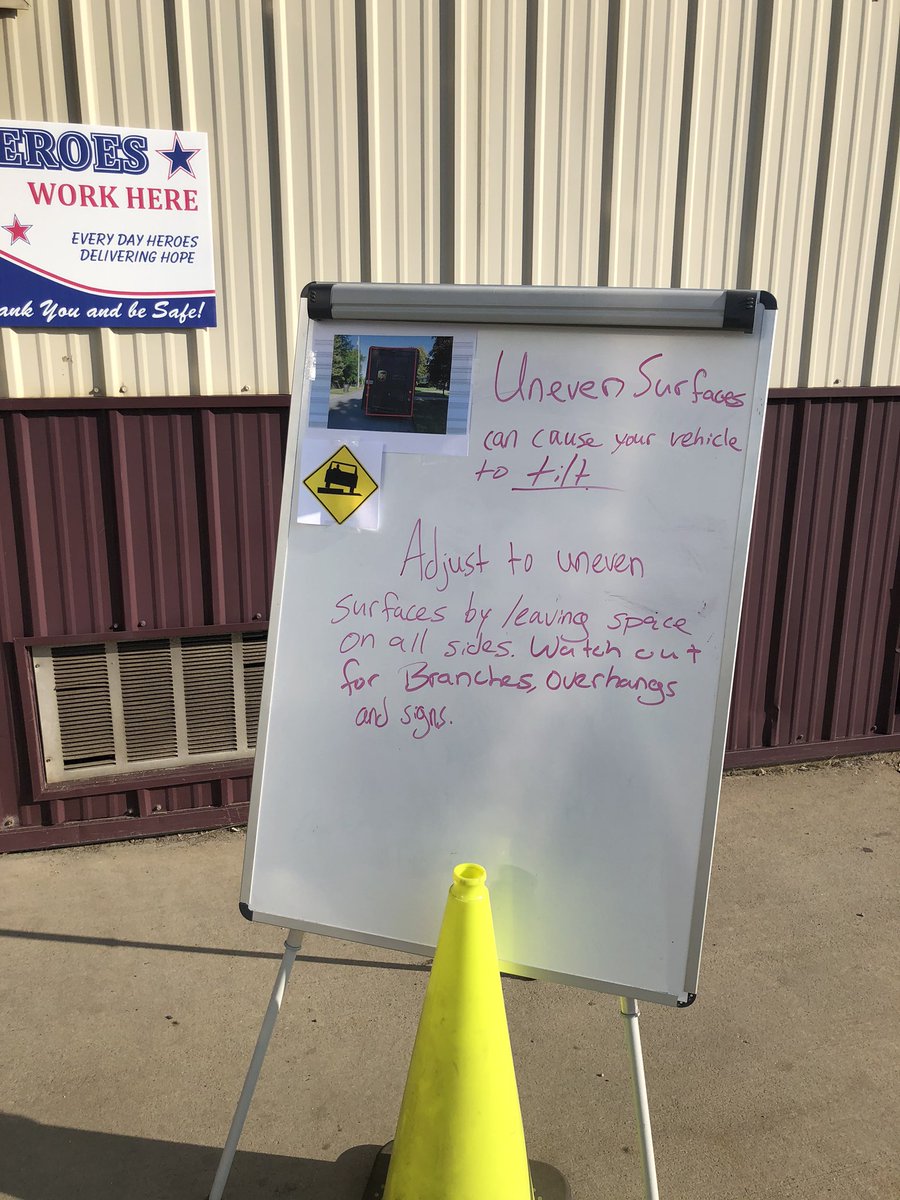 EROES
WORK HERE
EVERY DAY HEROES
DELIVERING HOPE
ank You and be Safe!
Uneven Surfaces
can cause your vehicle
to tilt
Adjust to uneven
surfaces by leaving space
on all sides. Watch out
for Branches, overhangs
and signs.